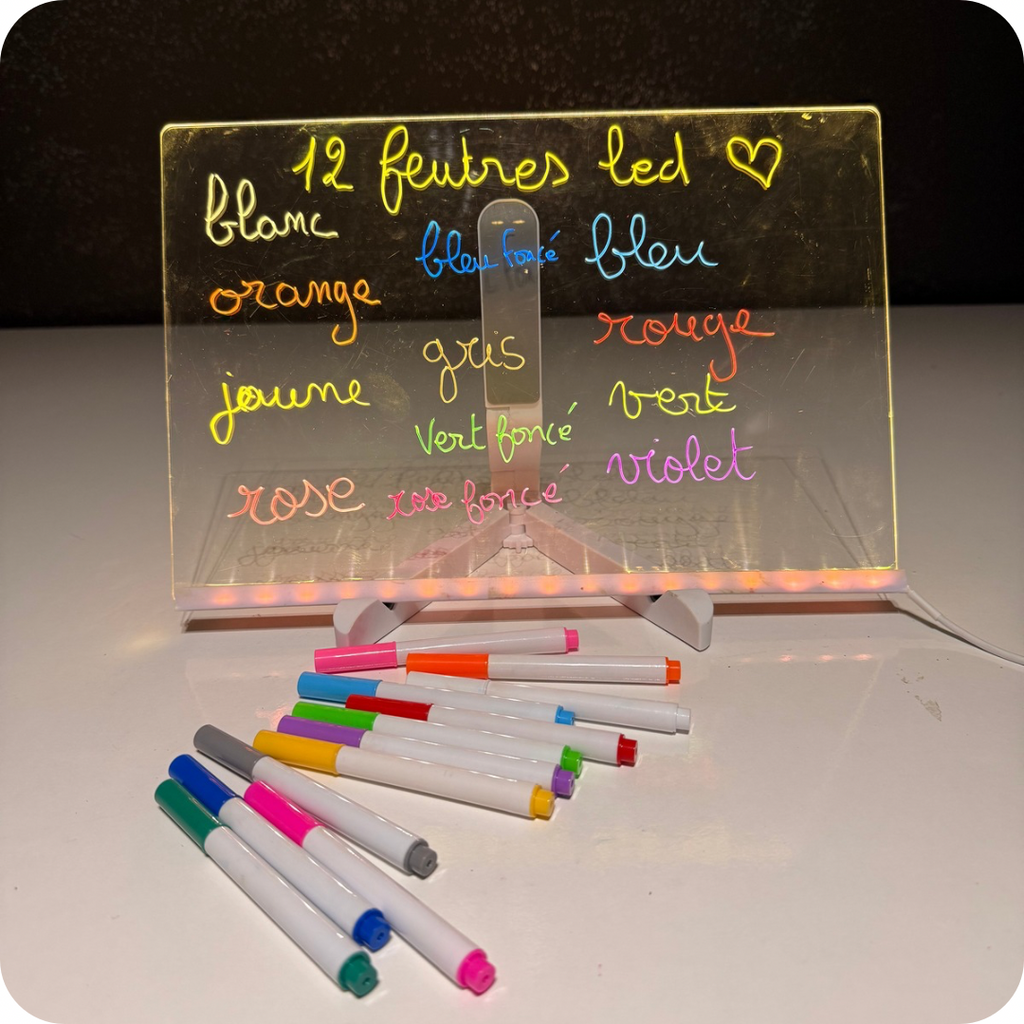 12 feutres led ♡
blanc
bleu foncé
bleu
orange
gris
rouge
jaune
vert foncé
vert
rose
rose foncé
violet